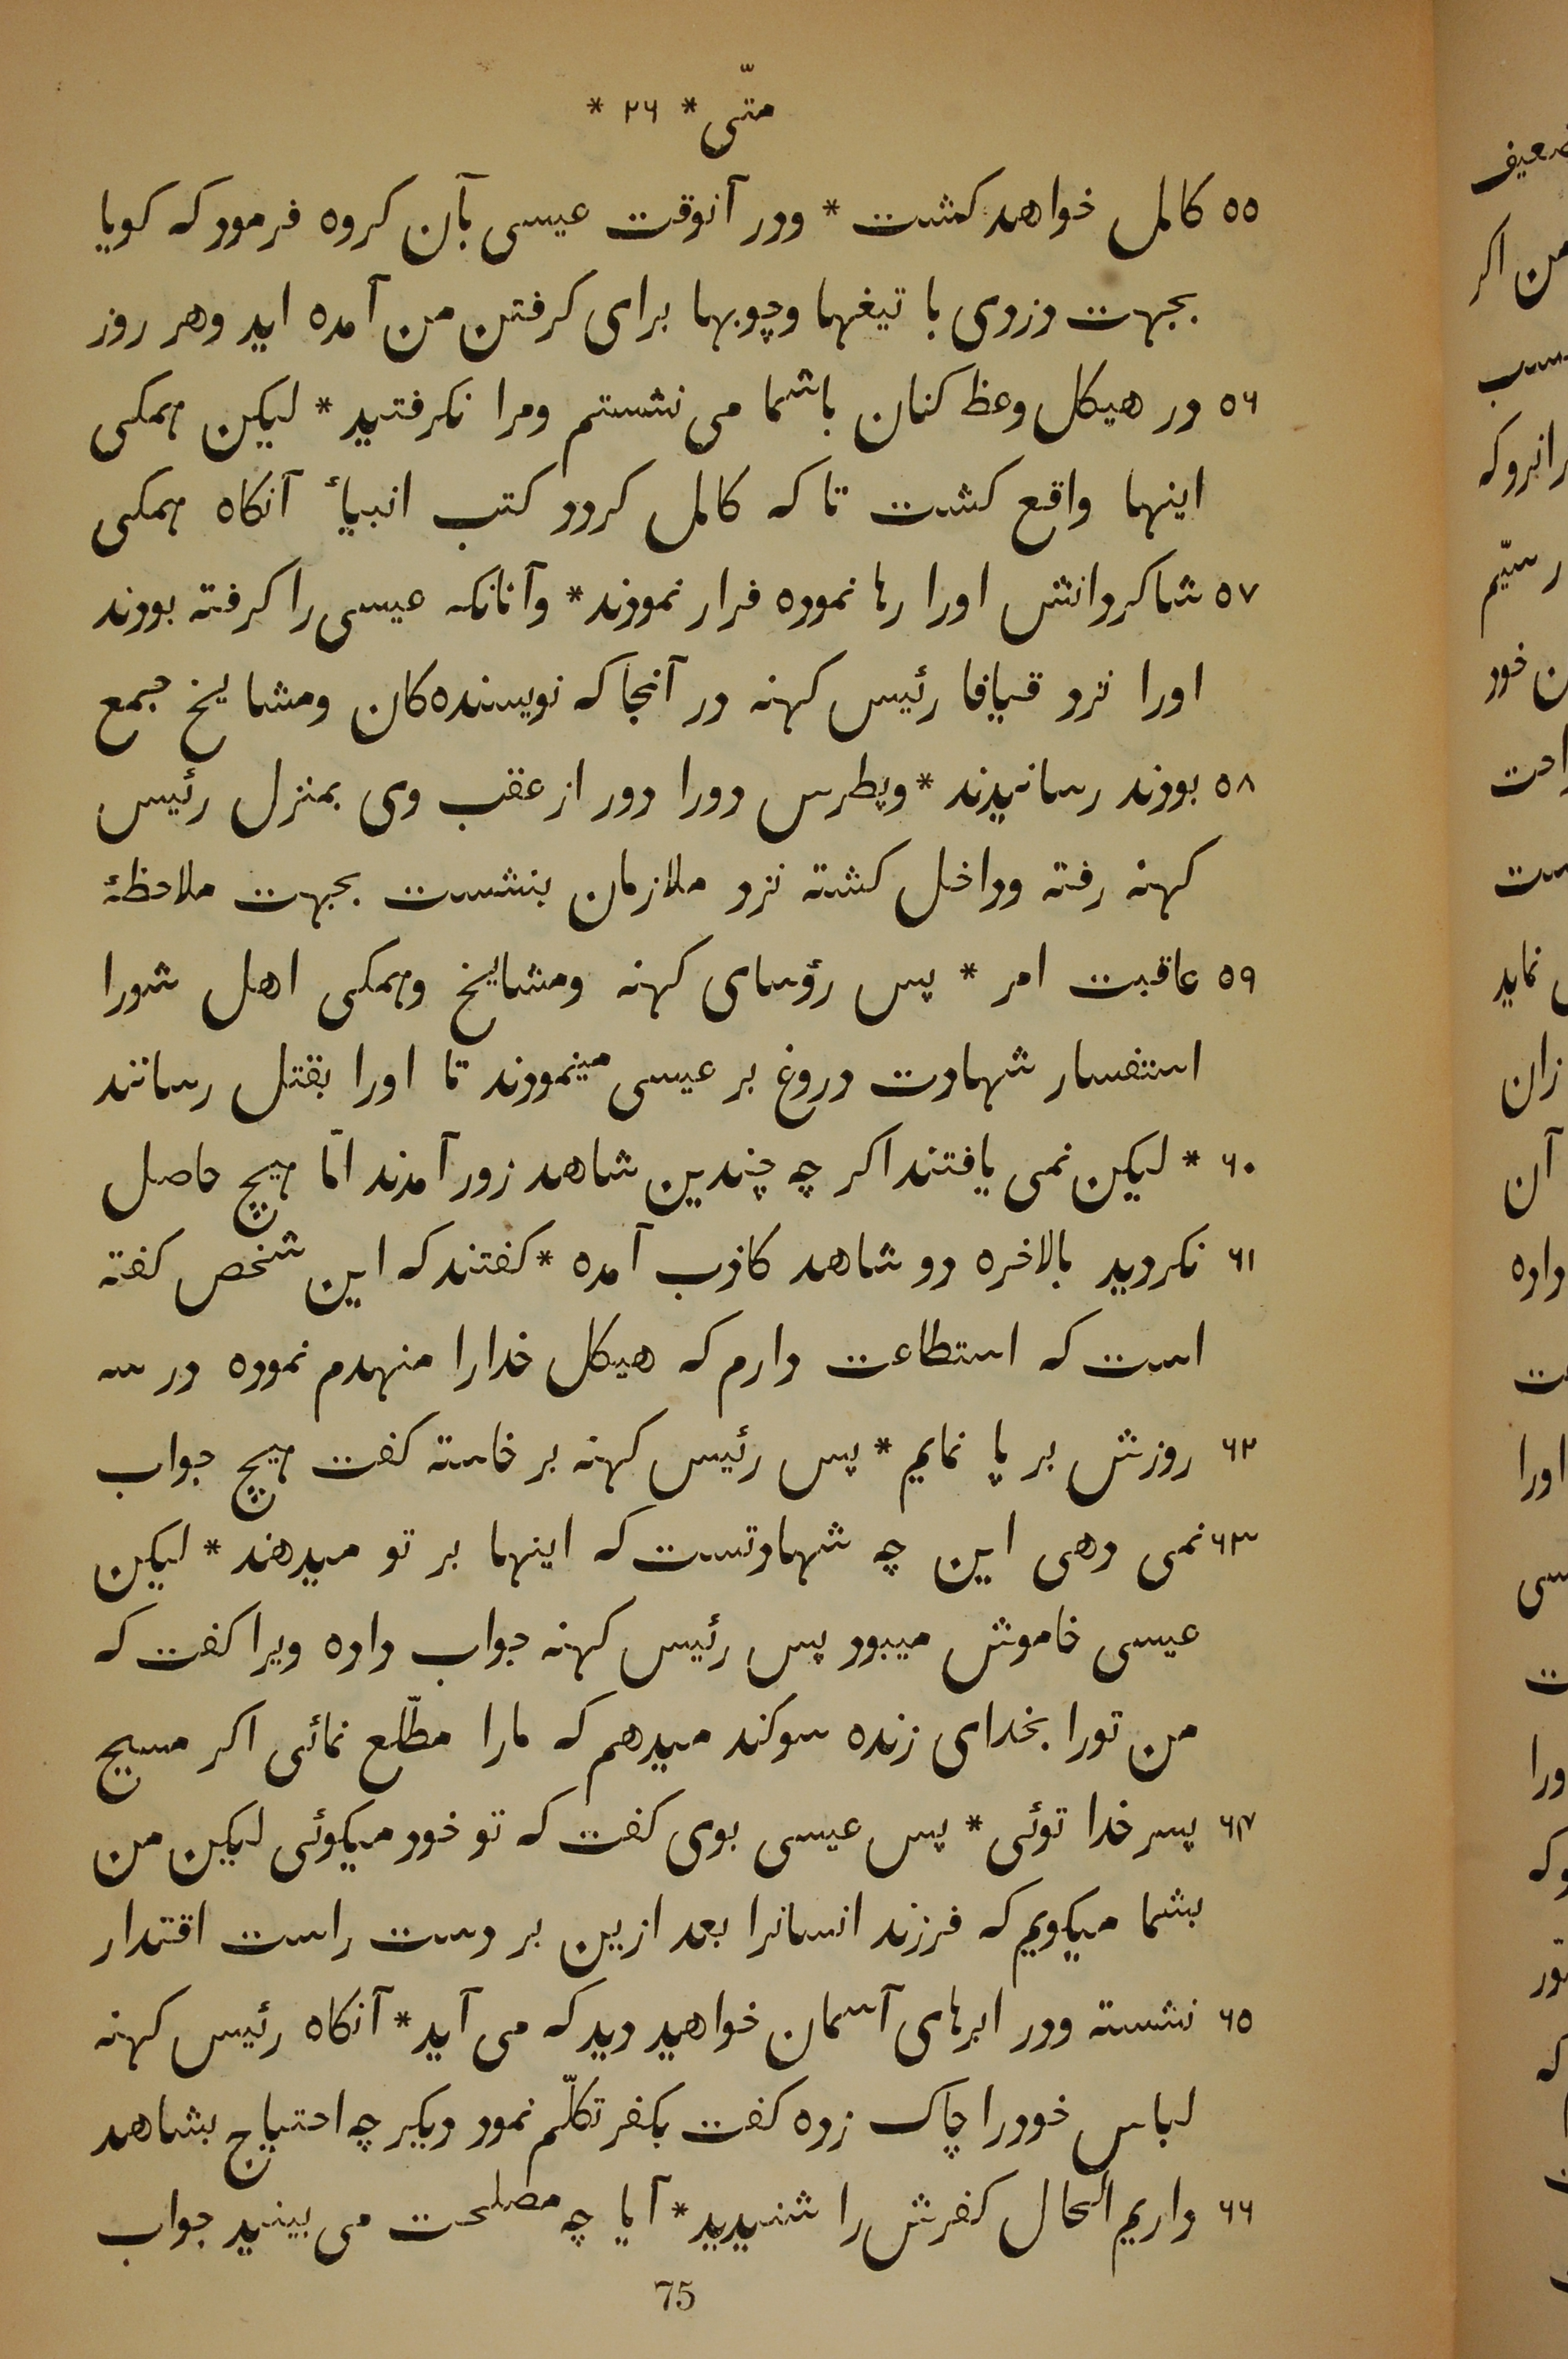 متّی * ۲۶ *
۵۵ کامل خواهد کشت * ودر آنوقت عیسی بآن کروه فرمود که کویا
بجهت دزدی با تیغها وچوبها برای کرفتن من آمده اید وهر روز
۵۶ در هیکل وعظ کنان باشما می نشستم ومرا نکرفتید * لیکن همکی
اینها واقع کشت تا که کامل کردد کتب انبیاٴ آنکاه همکی
۵۷ شاکردانش اورا رها نموده فرار نمودند * وآنانکه عیسی را کرفته بودند
اورا نزد قیافا رئیس کهنه در آنجا که نویسنده‌کان ومشایخ جمع
۵۸ بودند رسانیدند * وپطرس دورا دور از عقب وی بمنزل رئیس
کهنه رفته وداخل کشته نزد ملازمان بنشست بجهت ملاحظهٔ
۵۹ عاقبت امر * پس رؤسای کهنه ومشایخ وهمکی اهل شورا
استفسار شهادت دروغ بر عیسی مینمودند تا اورا بقتل رسانند
۶۰ * لیکن نمی یافتند اکر چه چندین شاهد زور آمدند امّا هیچ حاصل
۶۱ نکردید بالاخره دو شاهد کاذب آمده * کفتند که این شخص کفته
است که استطاعت دارم که هیکل خدارا منهدم نموده در سه
۶۲ روزش بر پا نمایم * پس رئیس کهنه بر خاسته کفت هیچ جواب
۶۳ نمی دهی این چه شهادتست که اینها بر تو میدهند * لیکن
عیسی خاموش میبود پس رئیس کهنه جواب داده ویرا کفت که
من تورا بخدای زنده سوکند میدهم که مارا مطّلع نمائی اکر مسیح
۶۴ پسر خدا توئی * پس عیسی بوی کفت که تو خود میکوئی لیکن من
بشما میکویم که فرزند انسانرا بعد ازین بر دست راست اقتدار
۶۵ نشسته ودر ابرهای آسمان خواهید دید که می آید * آنکاه رئیس کهنه
لباس خودرا چاک زده کفت بکفر تکلّم نمود دیکر چه احتیاج بشاهد
۶۶ داریم الحال کفرش را شنیدید * آیا چه مصلحت می بینید جواب
75